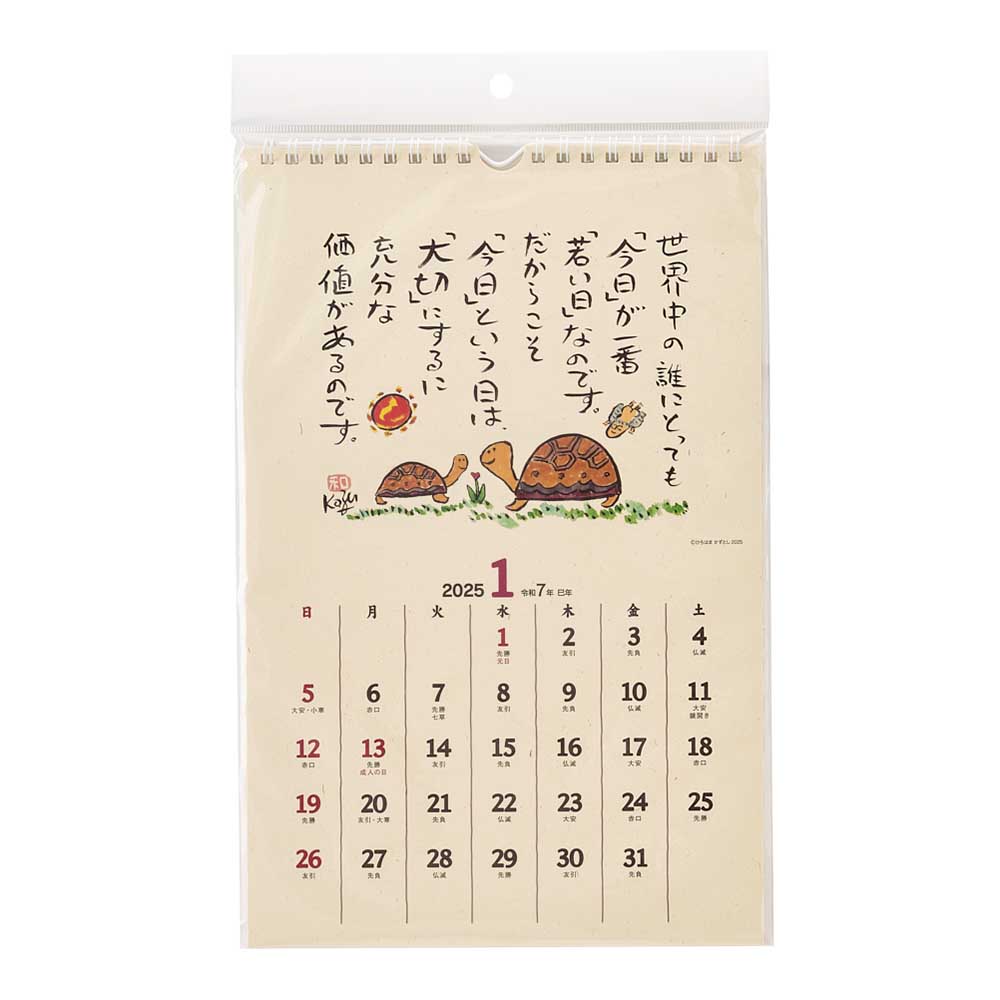 世界中の誰にとっても
「今日」が一番
「若い日」なのです。
だからこそ
「今日」という日は、
「大切」にするに
充分な
価値があるのです。
和
Kazu
©ひろはま かずとし 2025
2025 1 令和7年 巳年
日 月 火 水 木 金 土
1 2 3 4
先勝 友引 先負 仏滅
元日
5 6 7 8 9 10 11
大安・小寒 赤口 先勝 友引 先負 仏滅 大安
七草 鏡開き
12 13 14 15 16 17 18
赤口 先勝 友引 先負 仏滅 大安 赤口
成人の日
19 20 21 22 23 24 25
先勝 友引・大寒 先負 仏滅 大安 赤口 先勝
26 27 28 29 30 31
友引 先負 仏滅 先勝 友引 先負